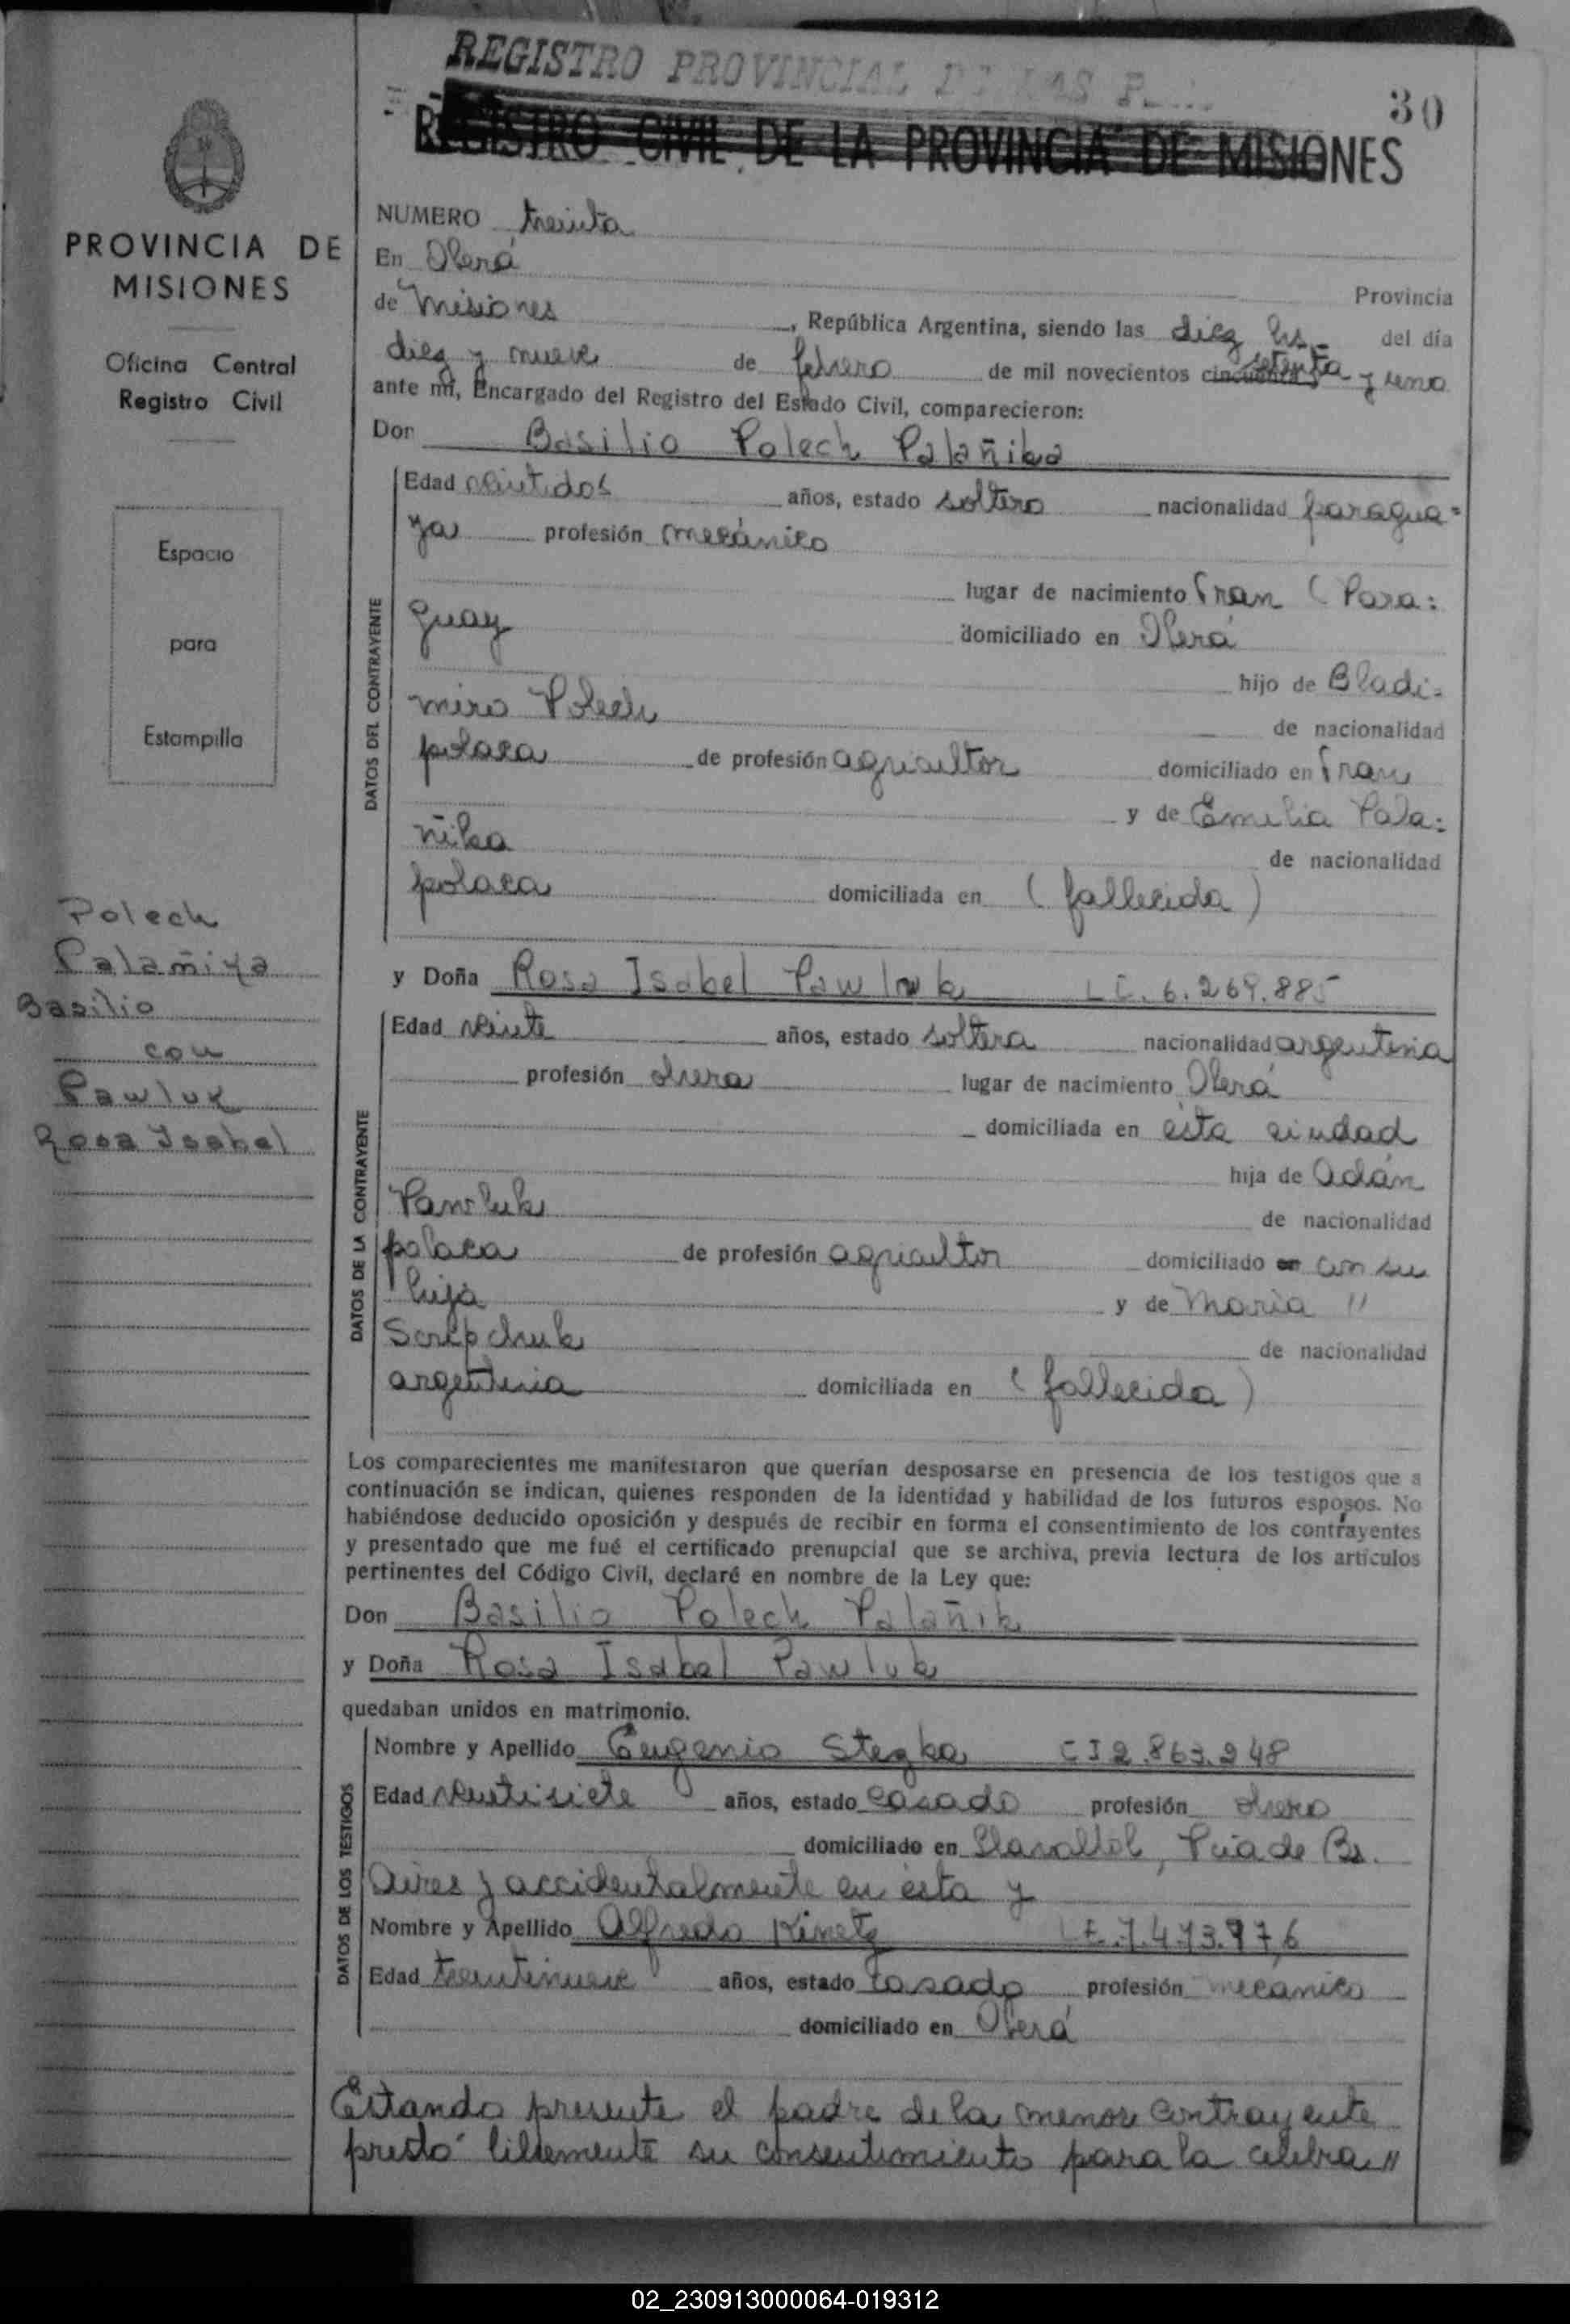 REGISTRO PROVINCIAL DE LAS P
30
REGISTRO CIVIL DE LA PROVINCIA DE MISIONES
PROVINCIA DE
MISIONES
Oficina Central
Registro Civil
Espacio
para
Estampilla
Polech
Palañika
Basilio
con
Pawluk
Rosa Isabel
NUMERO treinta
En Oberá
Provincia
de Misiones, República Argentina, siendo las diez hs. del día
diez y nueve de febrero de mil novecientos cincuenta setenta y uno
ante mí, Encargado del Registro del Estado Civil, comparecieron:
Don Basilio Polech Palañika
DATOS DEL CONTRAYENTE
Edad veintidos años, estado soltero nacionalidad paragua=
ya profesión mecánico
lugar de nacimiento Fran (Para:
guay domiciliado en Oberá
hijo de Bladi=
miro Polech de nacionalidad
polaca de profesión agricultor domiciliado en Fran
y de Emilia Pala:
ñika de nacionalidad
polaca domiciliada en (fallecida)
y Doña Rosa Isabel Pawluk LC. 6.269.885
DATOS DE LA CONTRAYENTE
Edad veinte años, estado soltera nacionalidad argentina
profesión obrera lugar de nacimiento Oberá
domiciliada en ésta ciudad
hija de Adán
Pawluk de nacionalidad
polaca de profesión agricultor domiciliado en con su
hija y de Maria "
Scripchuk de nacionalidad
argentina domiciliada en (fallecida)
Los comparecientes me manifestaron que querían desposarse en presencia de los testigos que a
continuación se indican, quienes responden de la identidad y habilidad de los futuros esposos. No
habiéndose deducido oposición y después de recibir en forma el consentimiento de los contrayentes
y presentado que me fué el certificado prenupcial que se archiva, previa lectura de los artículos
pertinentes del Código Civil, declaré en nombre de la Ley que:
Don Basilio Polech Palañik
y Doña Rosa Isabel Pawluk
quedaban unidos en matrimonio.
DATOS DE LOS TESTIGOS
Nombre y Apellido Eugenio Stezka CI 2.863.248
Edad veintisiete años, estado casado profesión obrero
domiciliado en Llavallol, Pcia de Bs.
Aires y accidentalmente en ésta y
Nombre y Apellido Alfredo Kinetz LE.7.473.976
Edad treintinueve años, estado casado profesión mecanico
domiciliado en Oberá
Estando presente el padre de la menor contrayente
prestó libremente su consentimiento para la celebra"
02_230913000064-019312